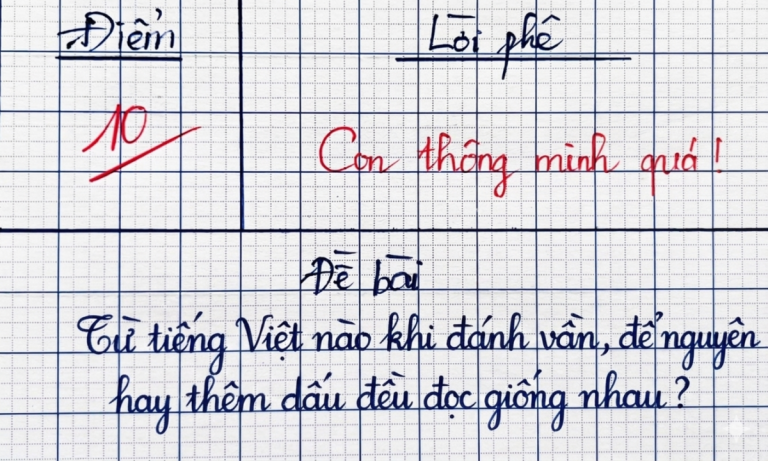 Điểm
Lời phê
10
Con thông minh quá!
Đề bài
Từ tiếng Việt nào khi đánh vần, để nguyên
hay thêm dấu đều đọc giống nhau?